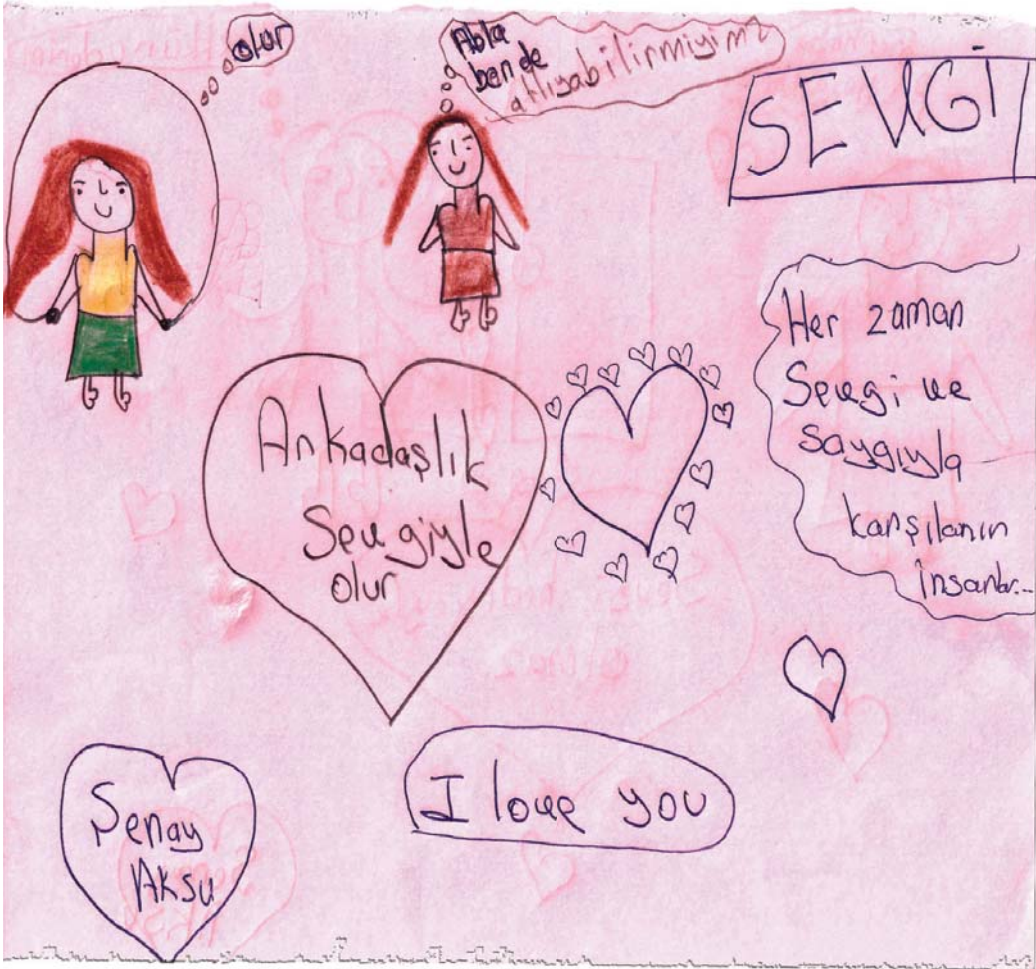 olur
Abla
bende
atlıyabilirmiyim?
SEVGİ
Her zaman
Sevgi ve
saygıyla
karşılanın
insanlar...
Arkadaşlık
Sevgiyle
olur
I love you
Şenay
Aksu